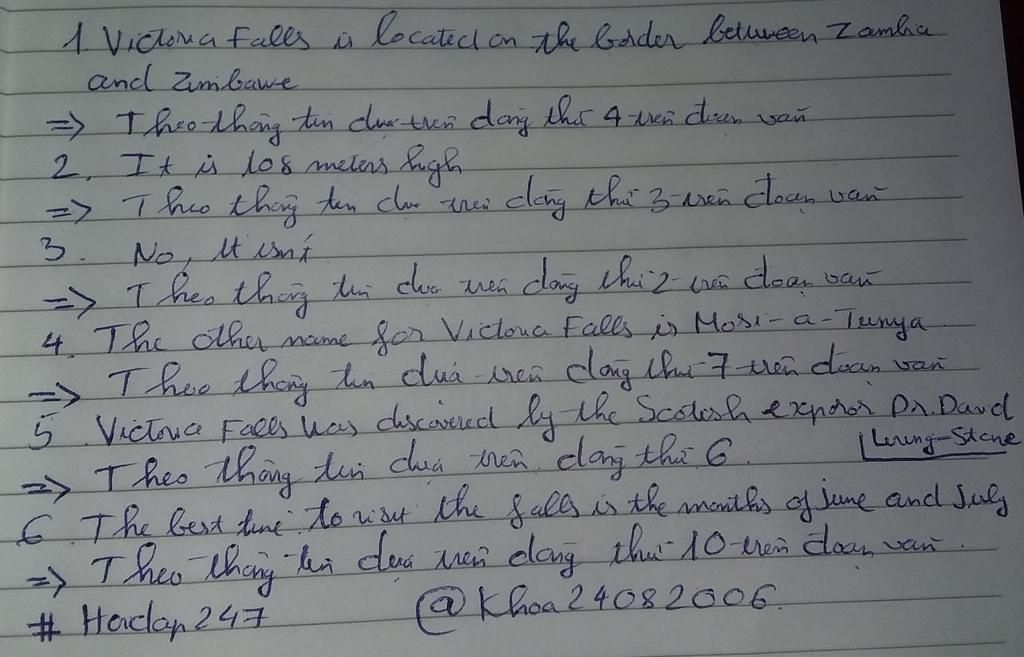 1. Victoria Falls is located on the border between Zambia
and Zimbawe
=> Theo thông tin dựa trên dòng thứ 4 trên đoạn văn
2. It is 108 meters high
=> Theo thông tin dựa trên dòng thứ 3 trên đoạn văn
3. No, it isn't
=> Theo thông tin dựa trên dòng thứ 2 trên đoạn văn
4. The other name for Victoria Falls is Mosi-a-Tunya
=> Theo thông tin dựa trên dòng thứ 7 trên đoạn văn
5. Victoria Falls was discovered by the Scotish exporor Dr. David
Living-Stone
=> Theo thông tin dựa trên dòng thứ 6.
6. The best time to visit the falls is the months of june and july
=> Theo thông tin dựa trên dòng thứ 10 trên đoạn văn.
# Hoidap247 @Khoa24082006.